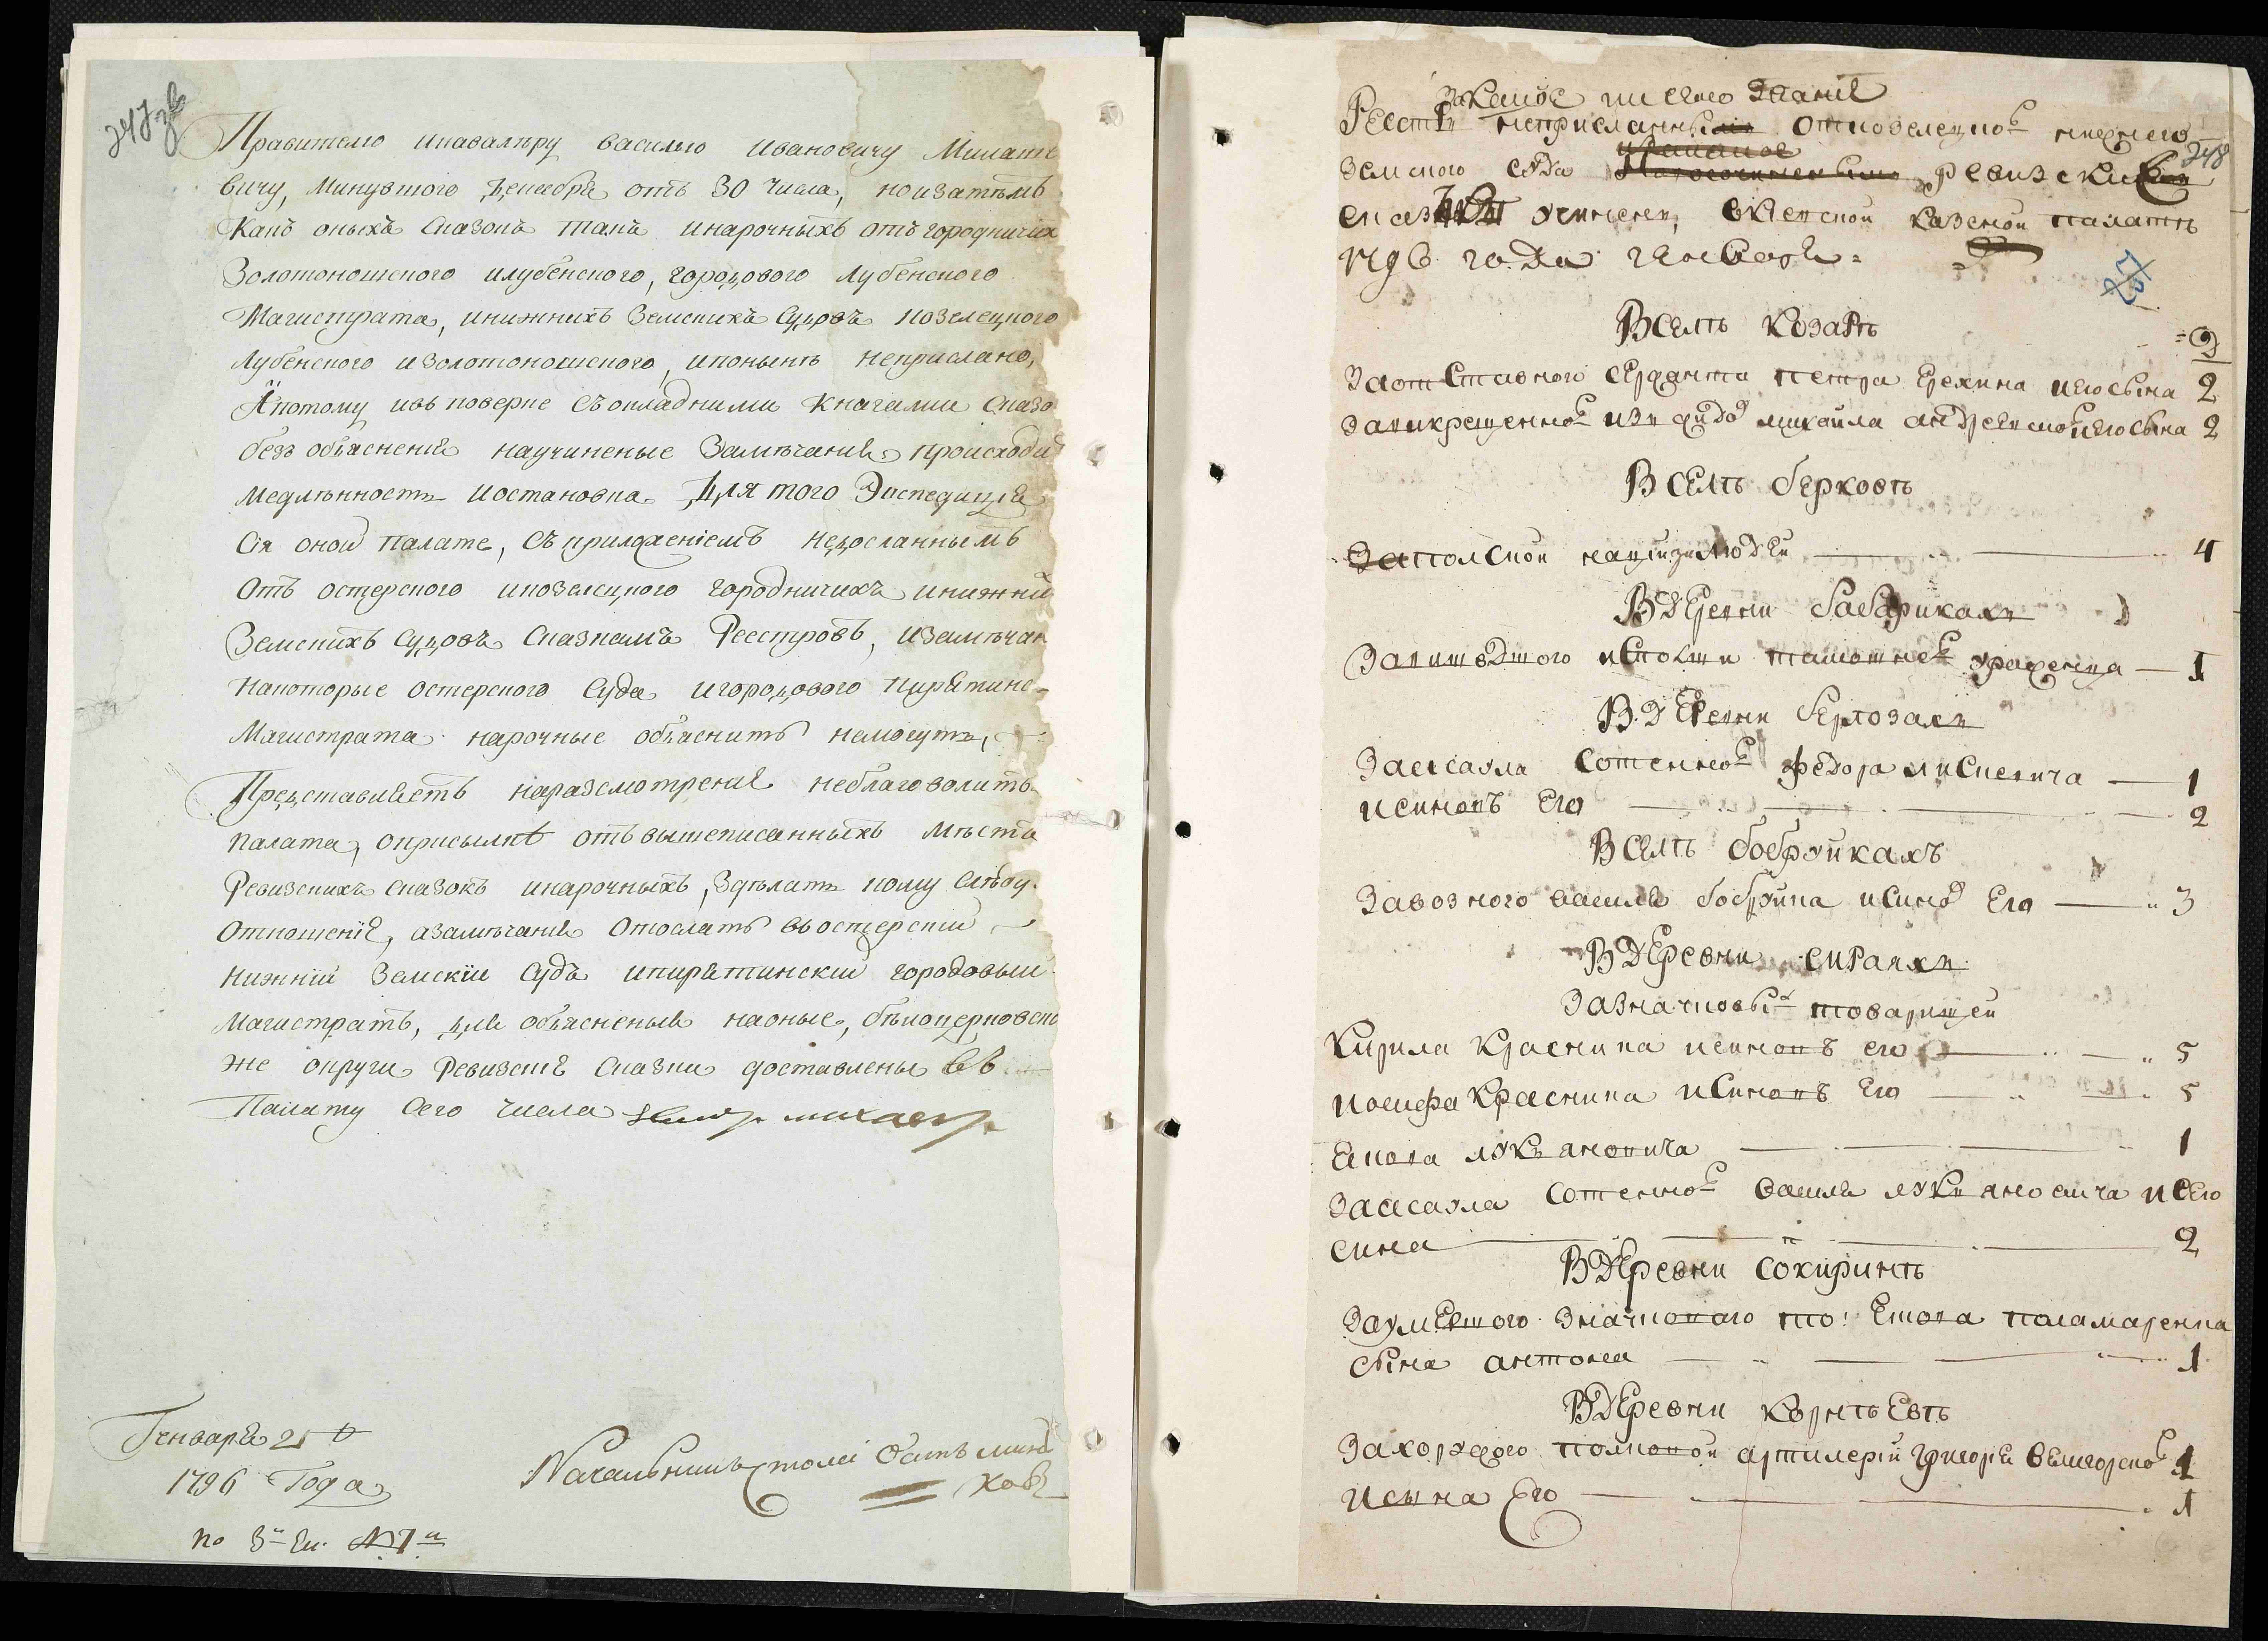 247 зв
Правителю икавалѣру василью Ивановичу Милаше
вичу, минувшого Декабря отъ 30 числа, ноизатѣмъ
Какъ оныхъ Сказокъ такъ инарочныхъ отъ городничихъ
Золотоношского илубенского, городового Лубенского
Магистрата, инижнихъ Земскихъ Судовъ козелецкого
Лубенского изолотоношского, ипонынѣ неприслано,
Апотому ивъ поверке съокладними Книгами Сказо
безъ объясненія научиненые Замѣчанія происходи
медлѣнность иостановка. Для того Экспедиція
Сія оной палате, съ приложеніемъ недосланнымъ
Отъ остерского икозелецкого городничихъ инижни
Земскихъ Судовъ Сказкамъ Реестровъ, изамѣчан
накоторые остерского Суда игородового пирятинс
Магистрата нарочные объяснить немогутъ,
Представляетъ наразсмотреніе неблаговолитъ
палата, оприсылкѣ отъ вышеписанныхъ мѣстъ
Ревизскихъ сказокъ инарочныхъ, здѣлать кому слѣду
Отношеніе, азамѣчания Отослать въостерскии
нижніи Земскіи Судъ ипирятинскии городовыи
магистратъ, для объясненья наоные, бѣлоцерковско
же округи Ревизскіе Сказки доставлены въ
Палату Сего числа
Генваря 21 д
1796 Года
по 3й Эк. №7й
Начальникъ стола
248
Реестръ неприсланным отъкозелецкоГ нижнего
земского суда ревизски
сказ учиненъ, вкиевской казеной палатѣ
179 года генваря
Вселѣ козарѣ
Заотставного сержанта петра Ерехина иего сына 2
завикрещенноГ изъ жидов михайла андреевскоГ иего сына 2
Вселѣ берковѣ
Заполской націіи людей 4
Вдеревни бабарикахъ
Завишедшого исполши тамошнеГ уроженца 1
Вдеревни берлозахъ
Заесаула сотенноГ федора лисневича 1
исиновъ Его 2
Вселѣ бобруйкахъ
Завозного василя бобруйка исинов Его 3
Вдеревни сираяхъ
Зазначковых товарищей
Кирила Красника исиновъ его 5
иосифа Красника исиновъ Его 5
Якова лукъяновича 1
Заесаула сотенноГ василя лукъяновича иего
сина 2
Вдеревни сокиринѣ
Заумершого значкового то: Якова паламаренка
сына антона 1
Вдеревни корнѣевѣ
Захоружого полковой артилеріи григорія велигорскоГ 1
исына Его 1